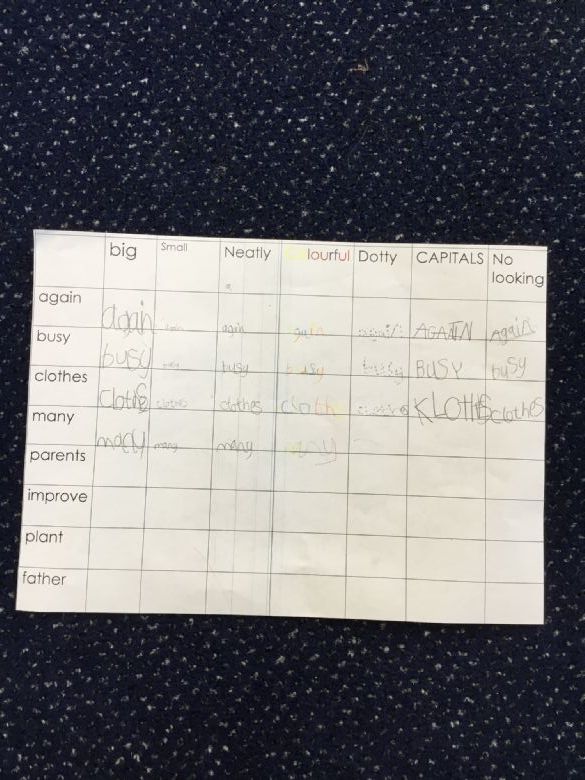 big Small Neatly Colourful Dotty CAPITALS No looking
again
again again again again again AGAIN Again
busy
busy busy busy busy busy BUSY busy
clothes
clothes clothes clothes KLOTHS clothes
many
many many many
parents
improve
plant
father